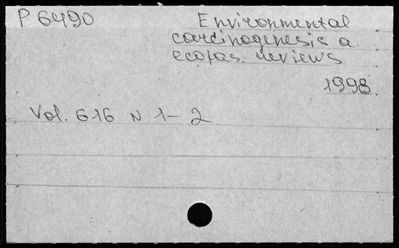 P 6490
Environmental
carcinogenesis a.
ecotas. reviews
1998.
Vol. G16 N 1-2